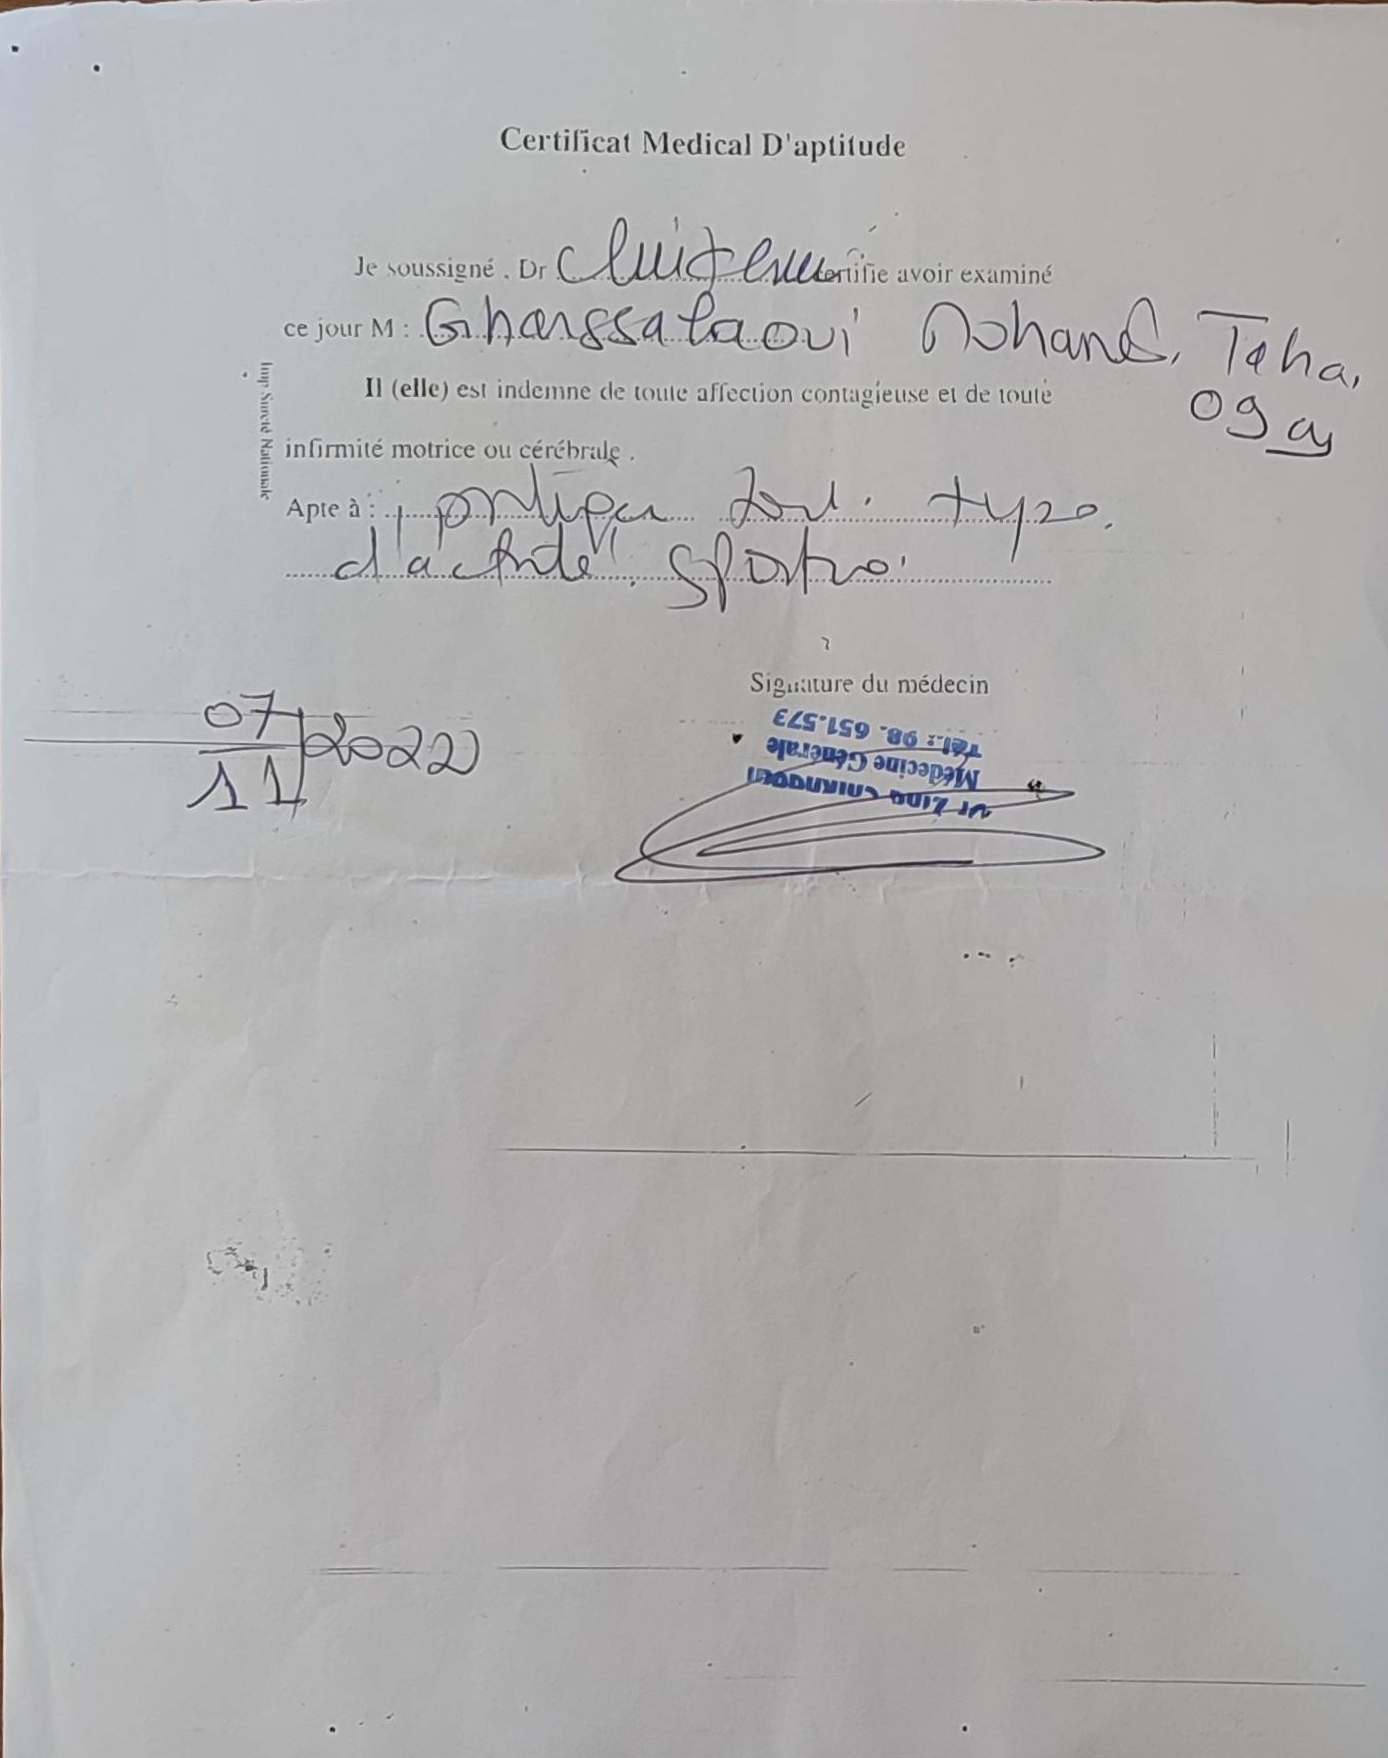 Certificat Medical D'aptitude
Je soussigné . Dr certifie avoir examiné
ce jour M : Gharssalaoui Mohamed, Taha,
09 ans
Il (elle) est indemne de toute affection contagieuse et de toute
infirmité motrice ou cérébrale .
Apte à : pratiquer tout type
d'activité sportive
Imp Sureté Nationale
Signature du médecin
07/11/2022
Dr Zina
Médecine Générale
Tél.: 98. 651.573